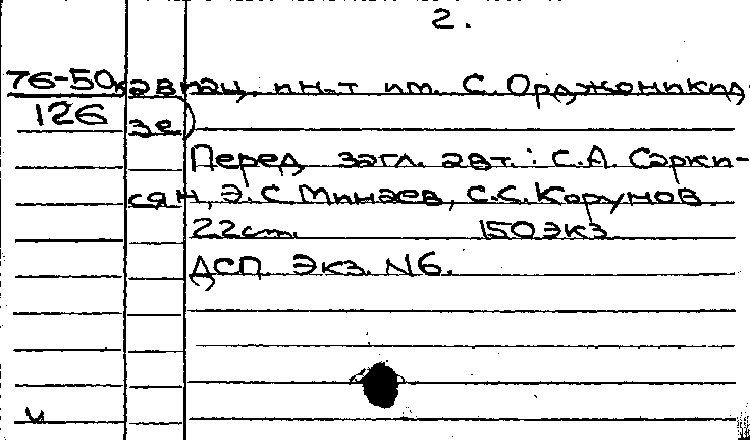 2.
76-50 кавиац. ин-т им. С. Орджоникид
126 зе)
Перед загл. авт.: С.А. Сарки-
сян, Э.С. Минаев, С.С. Корунов.
22 cm. 150 экз
ДСП. Экз. N6.
и